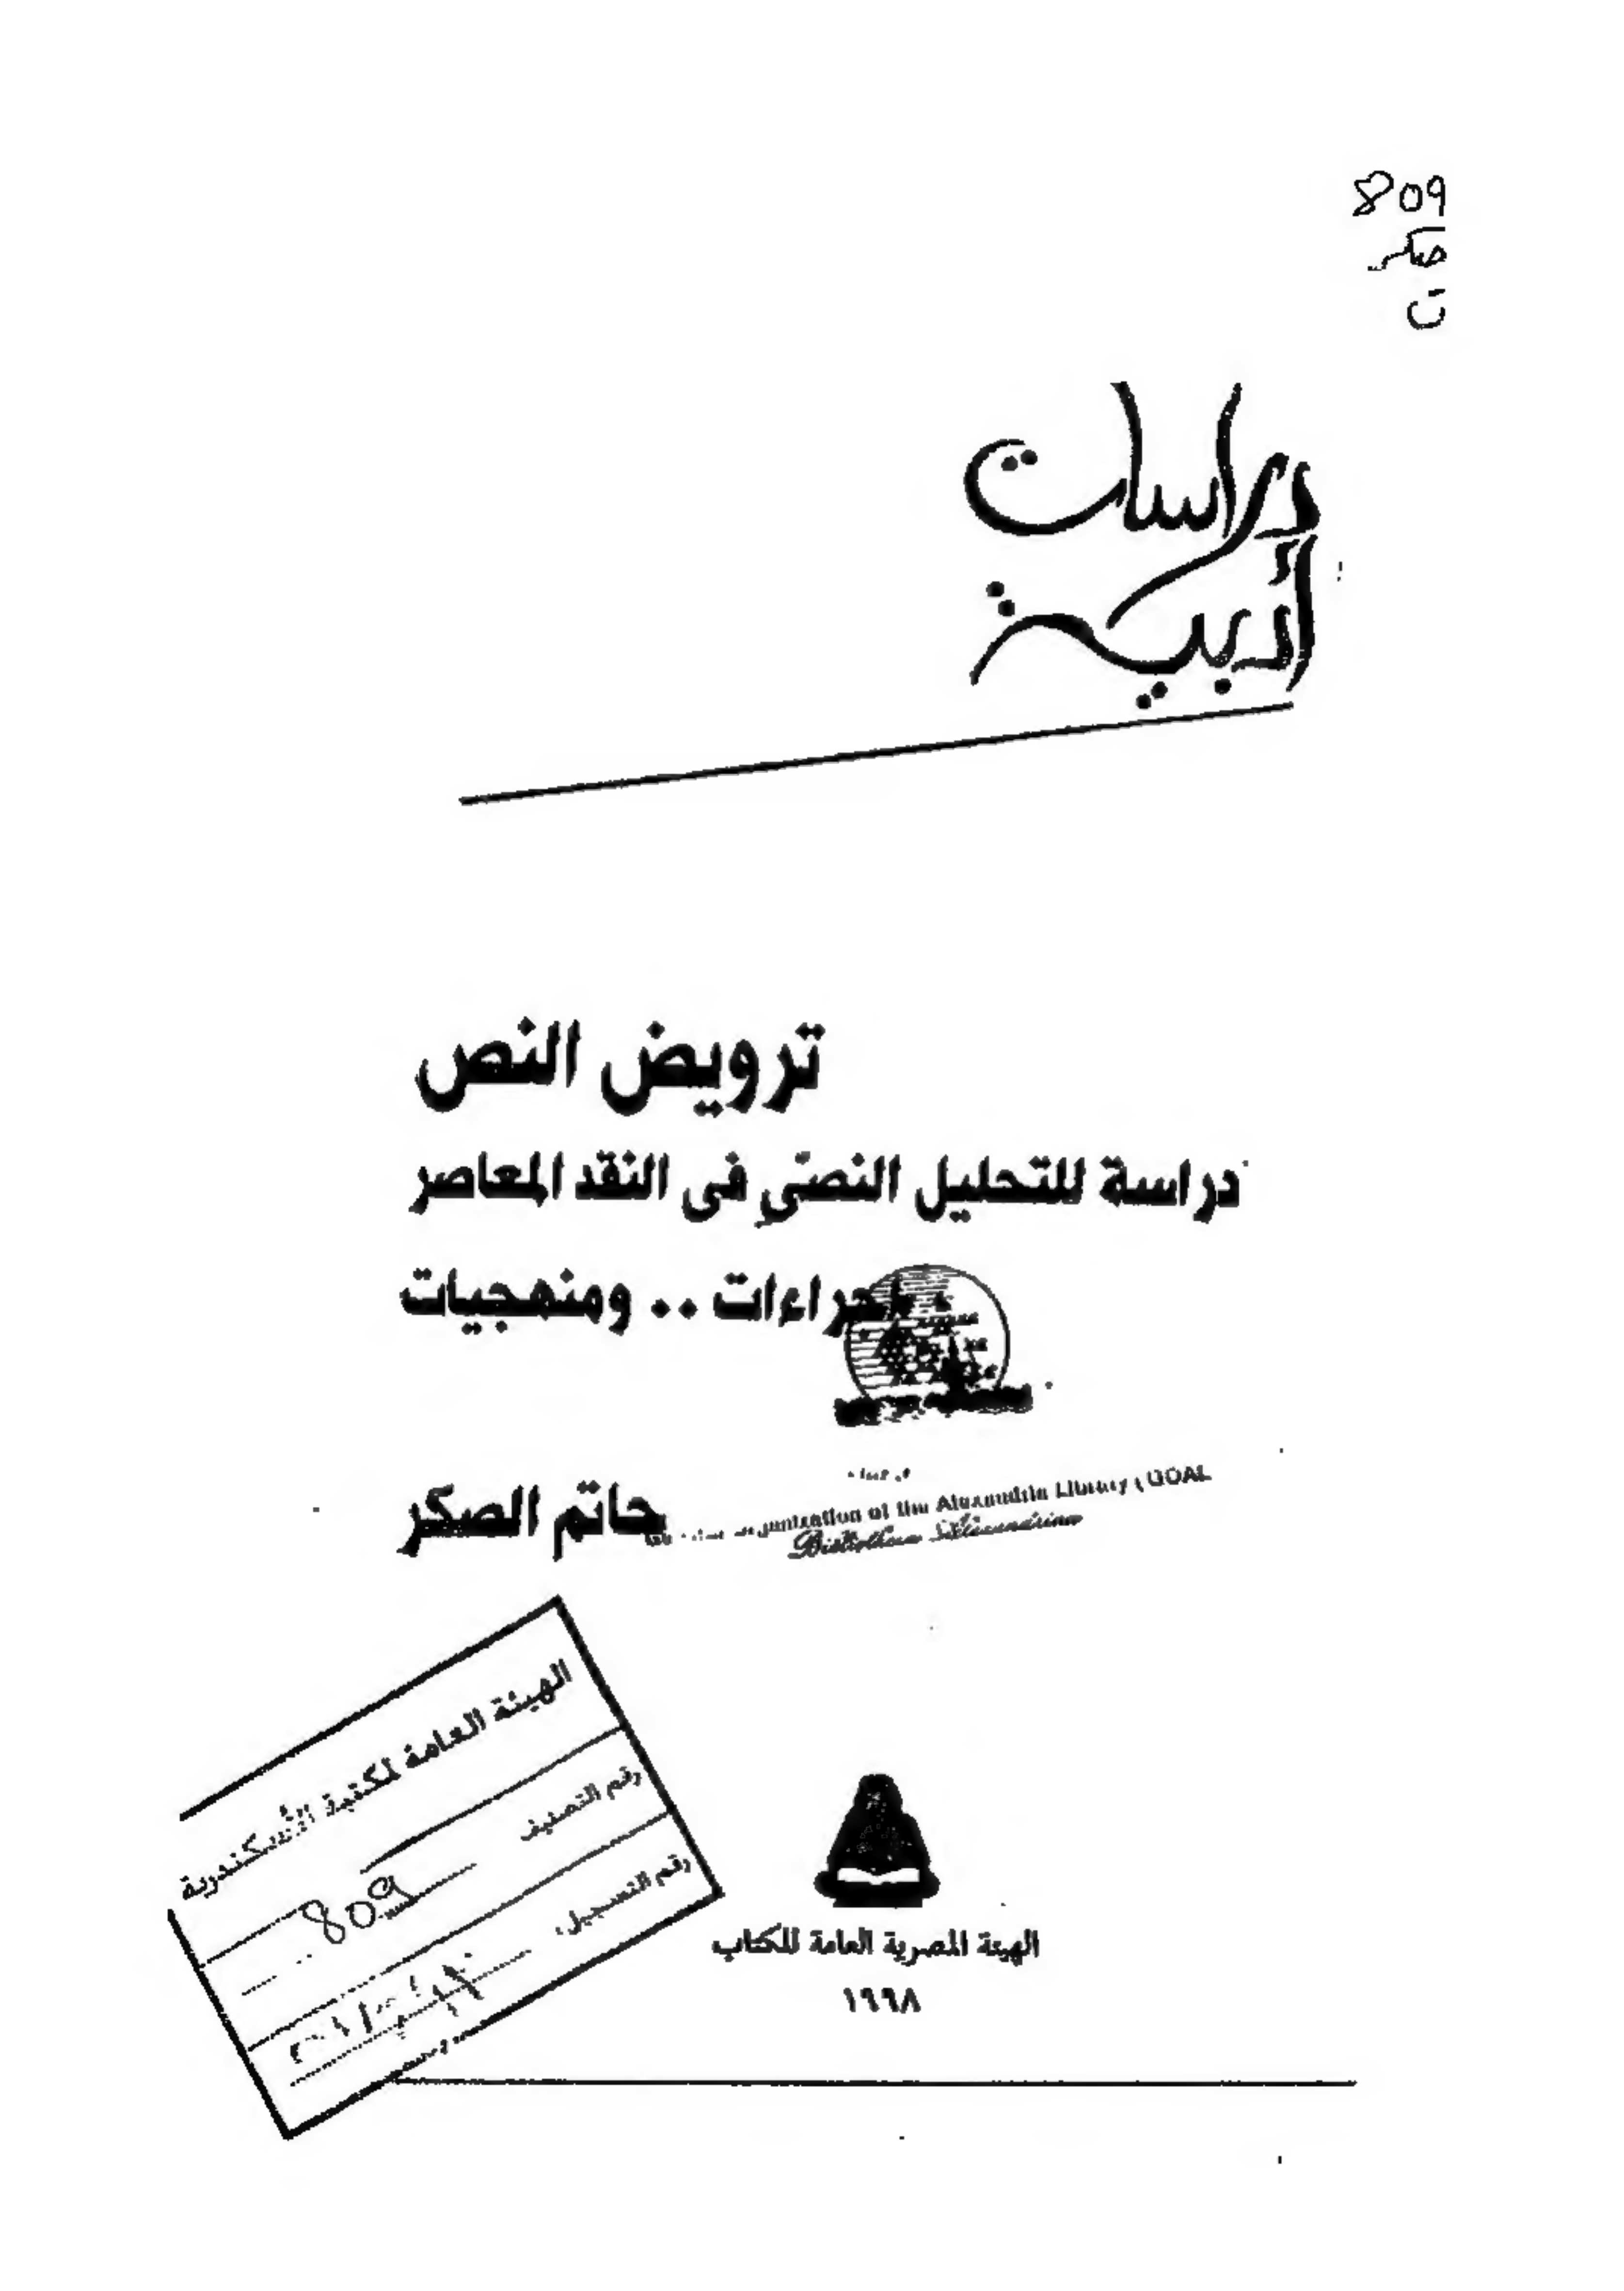 809
صكر
ت
دراسات
أدبية
ترويض النص
دراسة للتحليل النصّي فى النقد المعاصر
إجراءات .. ومنهجيات
حاتم الصكر
Organization of the Alexandria Library (GOAL
Bibliotheca Alexandrina
الهيئة العامة لمكتبة الأسكندرية
رقم التصنيف
809
رقم التسجيل
الهيئة المصرية العامة للكتاب
١٩٩٨